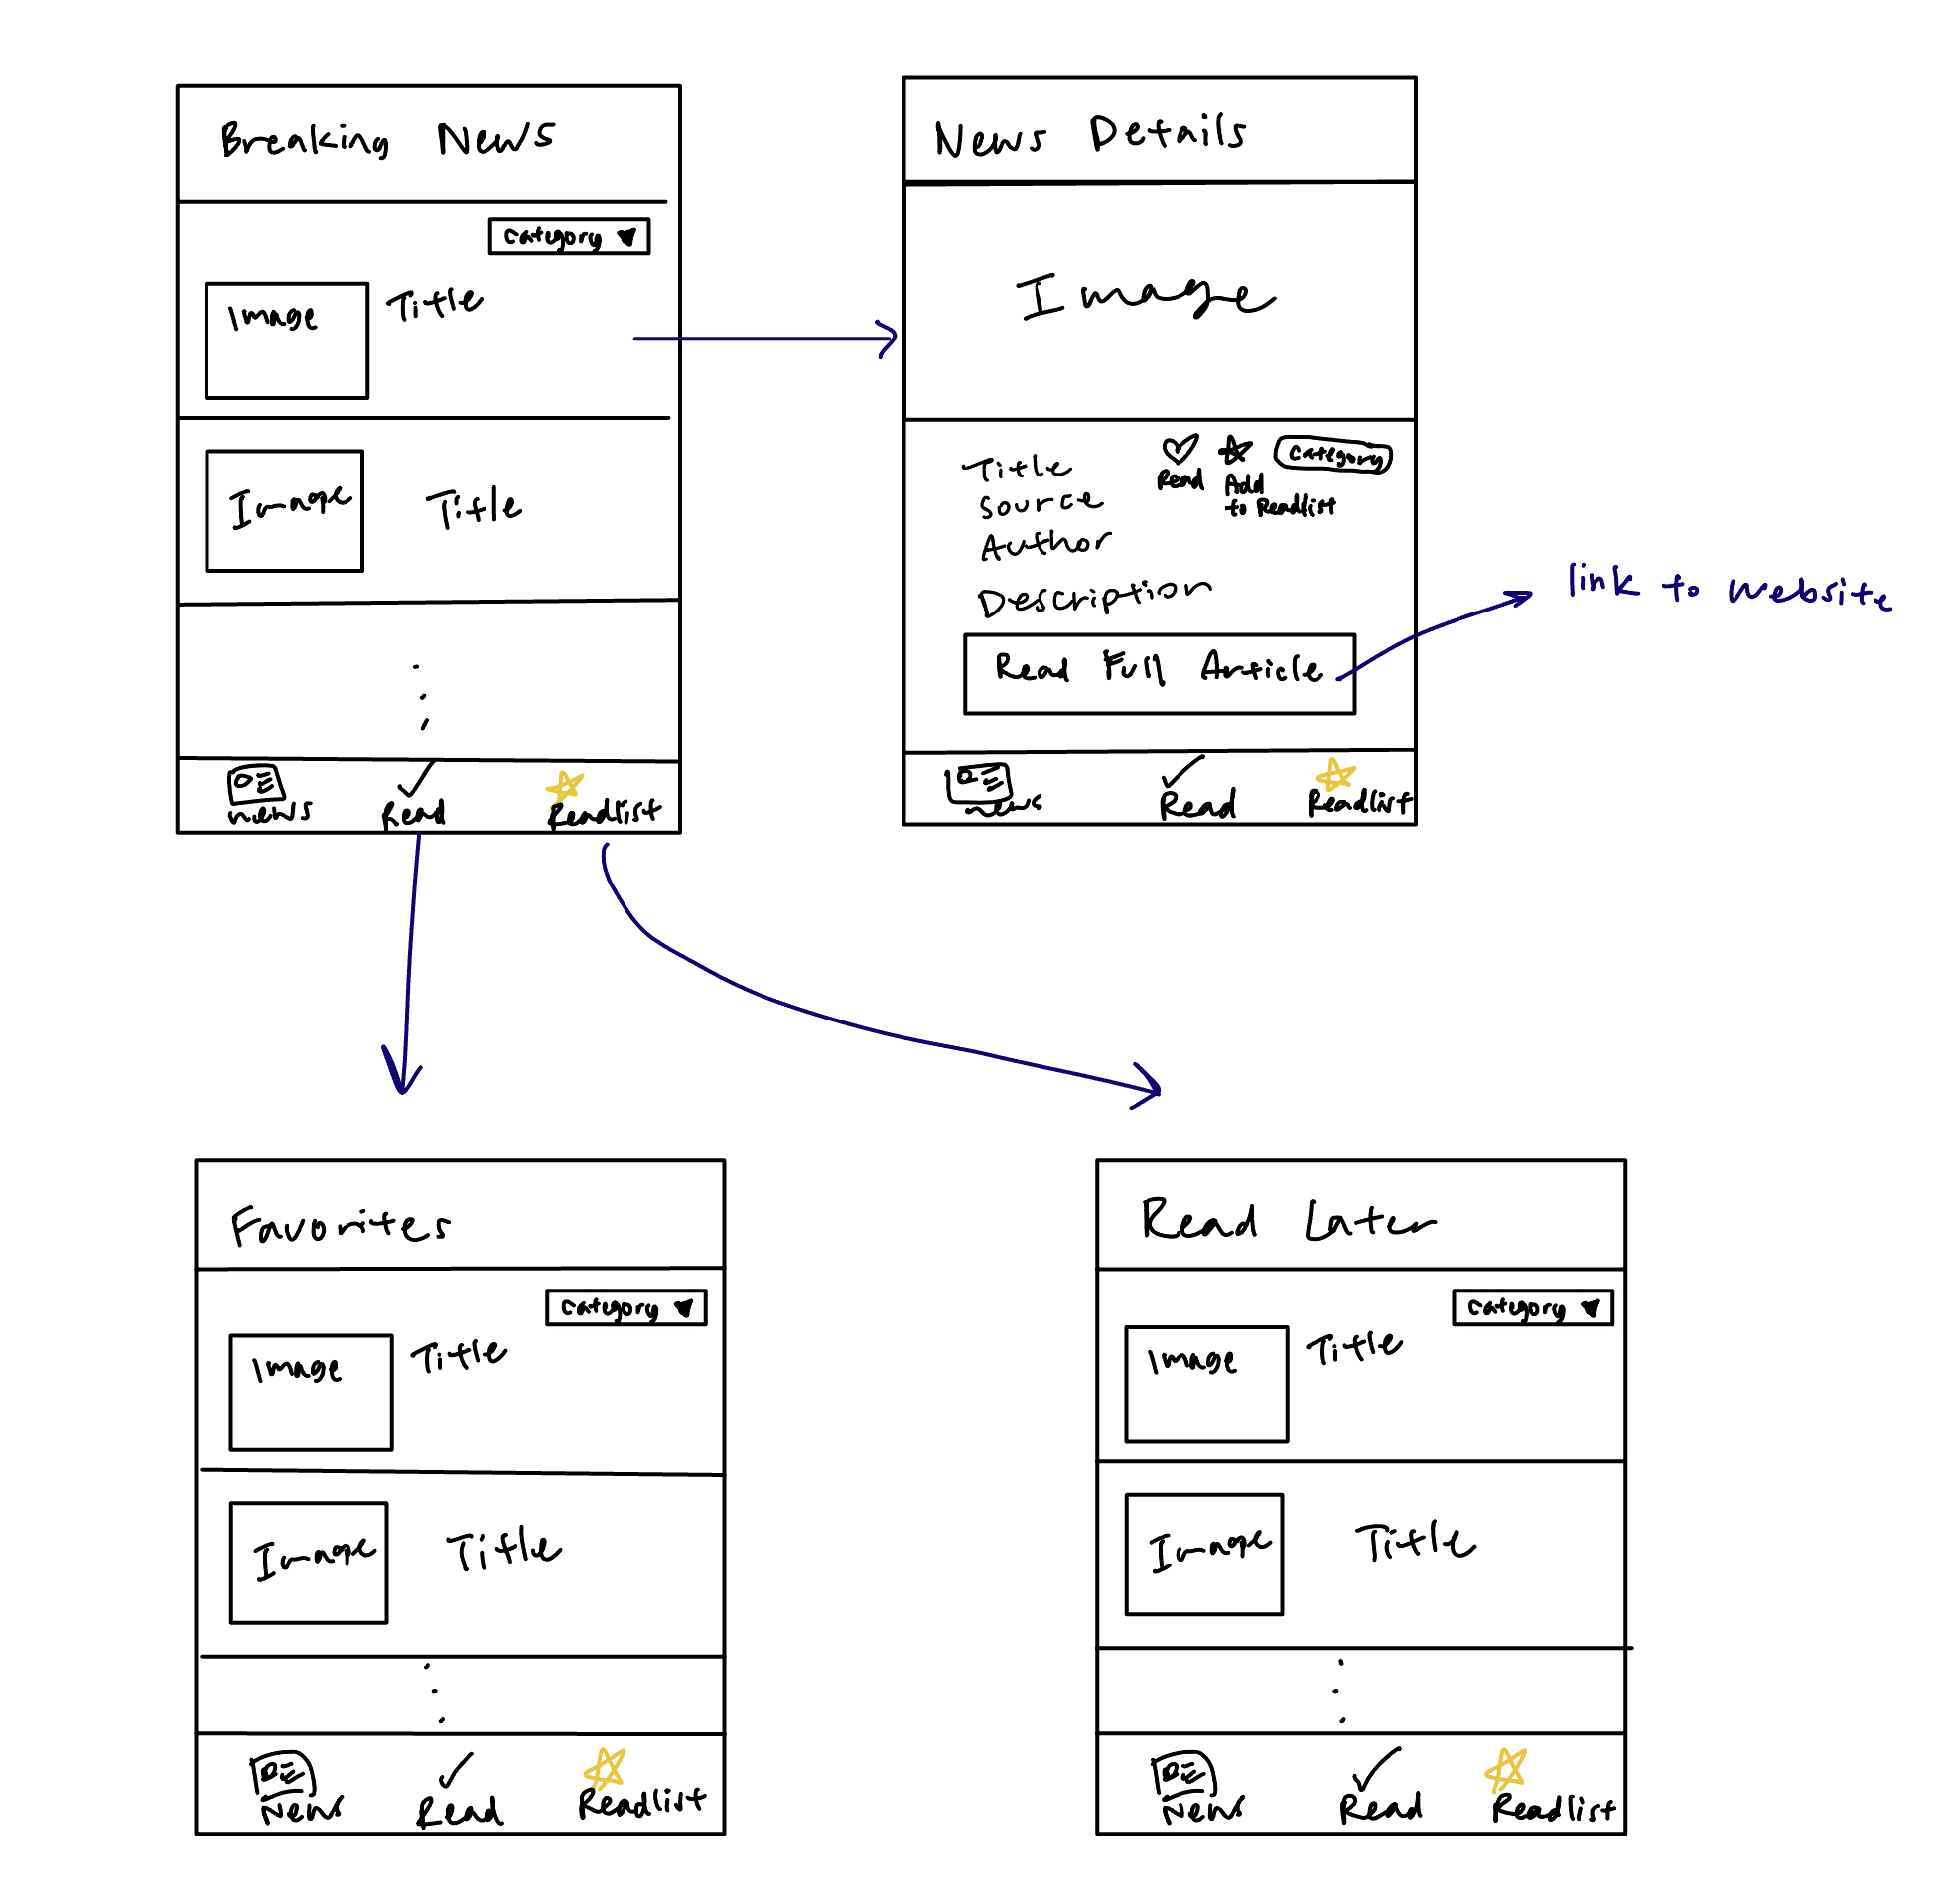 Breaking News
category
Image
Title
Image
Title
news
Read
Readlist
News Details
Image
Title
Read
Add
to Readlist
category
Source
Author
Description
Read Full Article
link to website
news
Read
Readlist
Favorites
category
Image
Title
Image
Title
News
Read
Readlist
Read Later
category
Image
Title
Image
Title
News
Read
Readlist